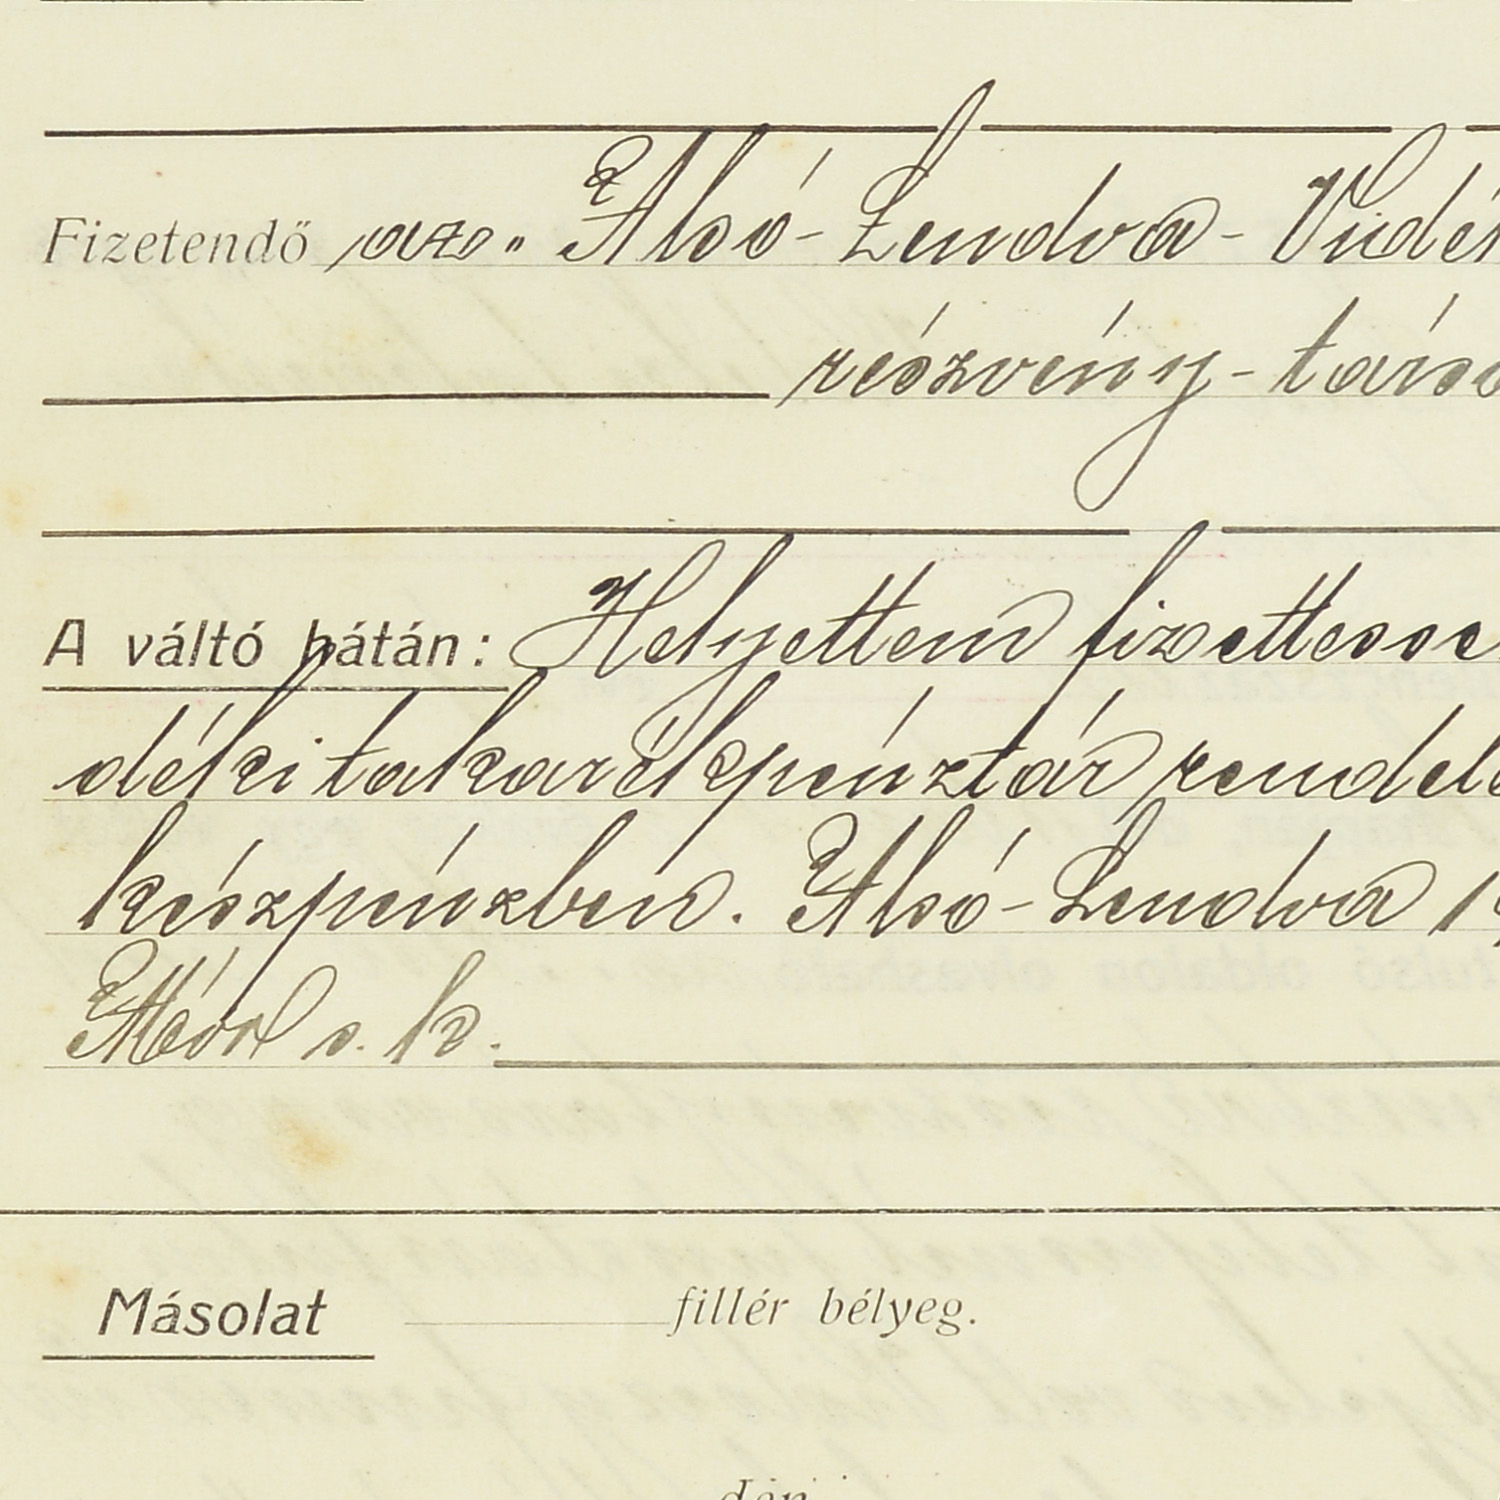 Fizetendő az „Alsó-Lendva-Vidék
részvény-társa
A váltó hátán: Helyettem fizettesse
déki takarékpénztár rendele
készpénzben. Alsó-Lendva 19
Mór s. k.
Másolat fillér bélyeg.